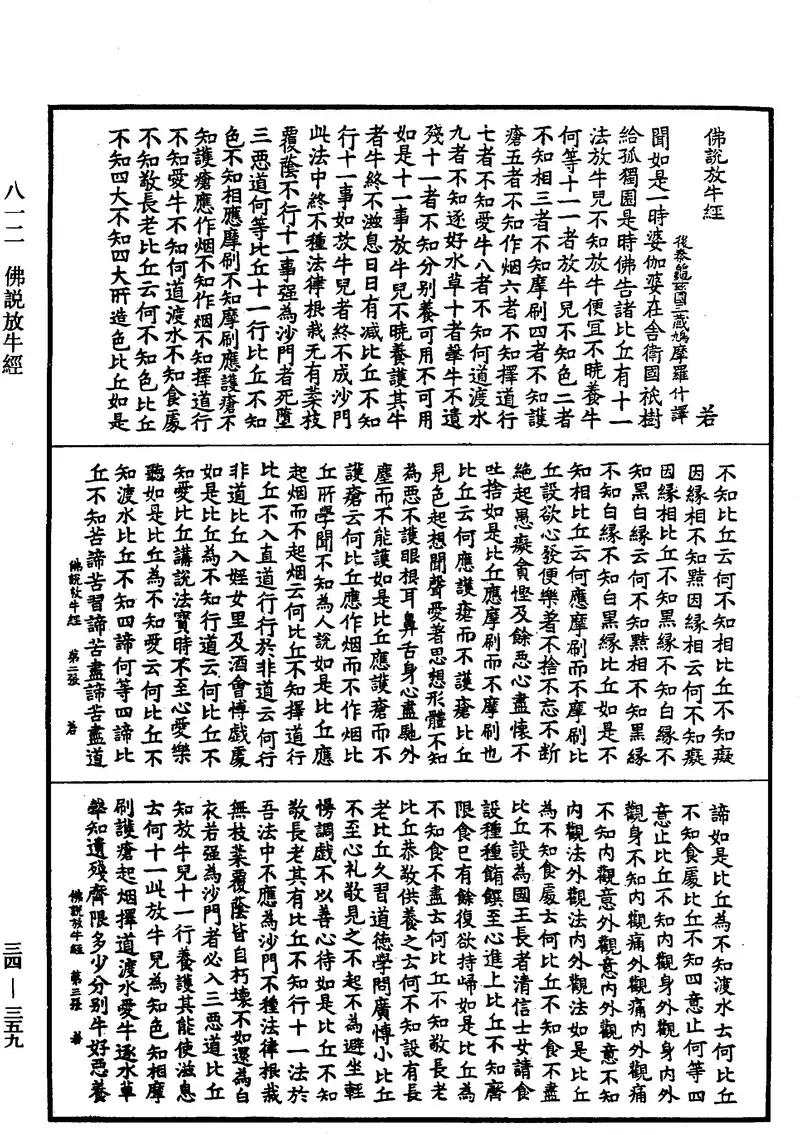 佛說放牛經
若
後秦龜茲國三藏鳩摩羅什譯
聞如是一時婆伽婆在舍衛國祇樹
給孤獨園是時佛告諸比丘有十一
法放牛兒不知放牛便宜不曉養牛
何等十一一者放牛兒不知色二者
不知相三者不知摩刷四者不知護
瘡五者不知作烟六者不知擇道行
七者不知愛牛八者不知何道渡水
九者不知逐好水草十者𤚲牛不遺
殘十一者不知分別養可用不可用
如是十一事放牛兒不曉養護其牛
者牛終不滋息日日有減比丘不知
行十一事如放牛兒者終不成沙門
此法中終不種法律根栽无有葉枝
覆蔭不行十一事强為沙門者死墮
三惡道何等比丘十一行比丘不知
色不知相應摩刷不知摩刷應護瘡不
知護瘡應作烟不知作烟不知擇道行
不知愛牛不知何道渡水不知食處
不知敬長老比丘云何不知色比丘
不知四大不知四大所造色比丘如是
不知比丘云何不知相比丘不知癡
因緣相不知黠因緣相云何不知癡
因緣相比丘不知黑緣不知白緣不
知黑白緣云何不知黠相不知黑緣
不知白緣不知白黑緣比丘如是不
知相比丘云何應摩刷而不摩刷比
丘設欲心發便樂著不捨不忘不斷
絕起愚癡貪慳及餘惡心盡懷不
吐捨如是比丘應摩刷而不摩刷也
比丘云何應護瘡而不護瘡比丘
見色起想聞聲愛著思想形體不知
為惡不護眼根耳鼻舌身心盡馳外
塵而不能護如是比丘應護瘡而不
護瘡云何比丘應作烟而不作烟比
丘所學聞不知為人說如是比丘應
起烟而不起烟云何比丘不知擇道行
比丘不入直道行行於非道云何行
非道比丘入婬女里及酒會博戲處
如是比丘為不知行道云何比丘不
知愛比丘講說法寶時不至心愛樂
聽如是比丘為不知愛云何比丘不
知渡水比丘不知四諦何等四諦比
丘不知苦諦苦習諦苦盡諦苦盡道
佛說放牛經　第二張　若
諦如是比丘為不知渡水云何比丘
不知食處比丘不知四意止何等四
意止比丘不知內觀身外觀身內外
觀身不知內觀痛外觀痛內外觀痛
不知內觀意外觀意內外觀意不知
內觀法外觀法內外觀法如是比丘
為不知食處云何比丘不知食不盡
比丘設為國王長者清信士女請食
設種種餚饌至心進上比丘不知齊
限食已有餘復欲持歸如是比丘為
不知食不盡云何比丘不知敬長老
比丘恭敬供養之云何不知設有長
老比丘久習道德學問廣博小比丘
不至心礼敬見之不起不為避坐輕
慢調戲不以善心待如是比丘不知
敬長老其有比丘不知行十一法於
吾法中不應為沙門不種法律根栽
無枝葉覆蔭皆自朽壞不如還為白
衣若强為沙門者必入三惡道比丘
知放牛兒十一行養護其能使滋息
云何十一此放牛兒為知色知相摩
刷護瘡起烟擇道渡水愛牛逐水草
𤚲知遺殘齊限多少分別牛好惡養
佛說放牛經　第三張　若
八一二　佛說放牛經
三四—三五九